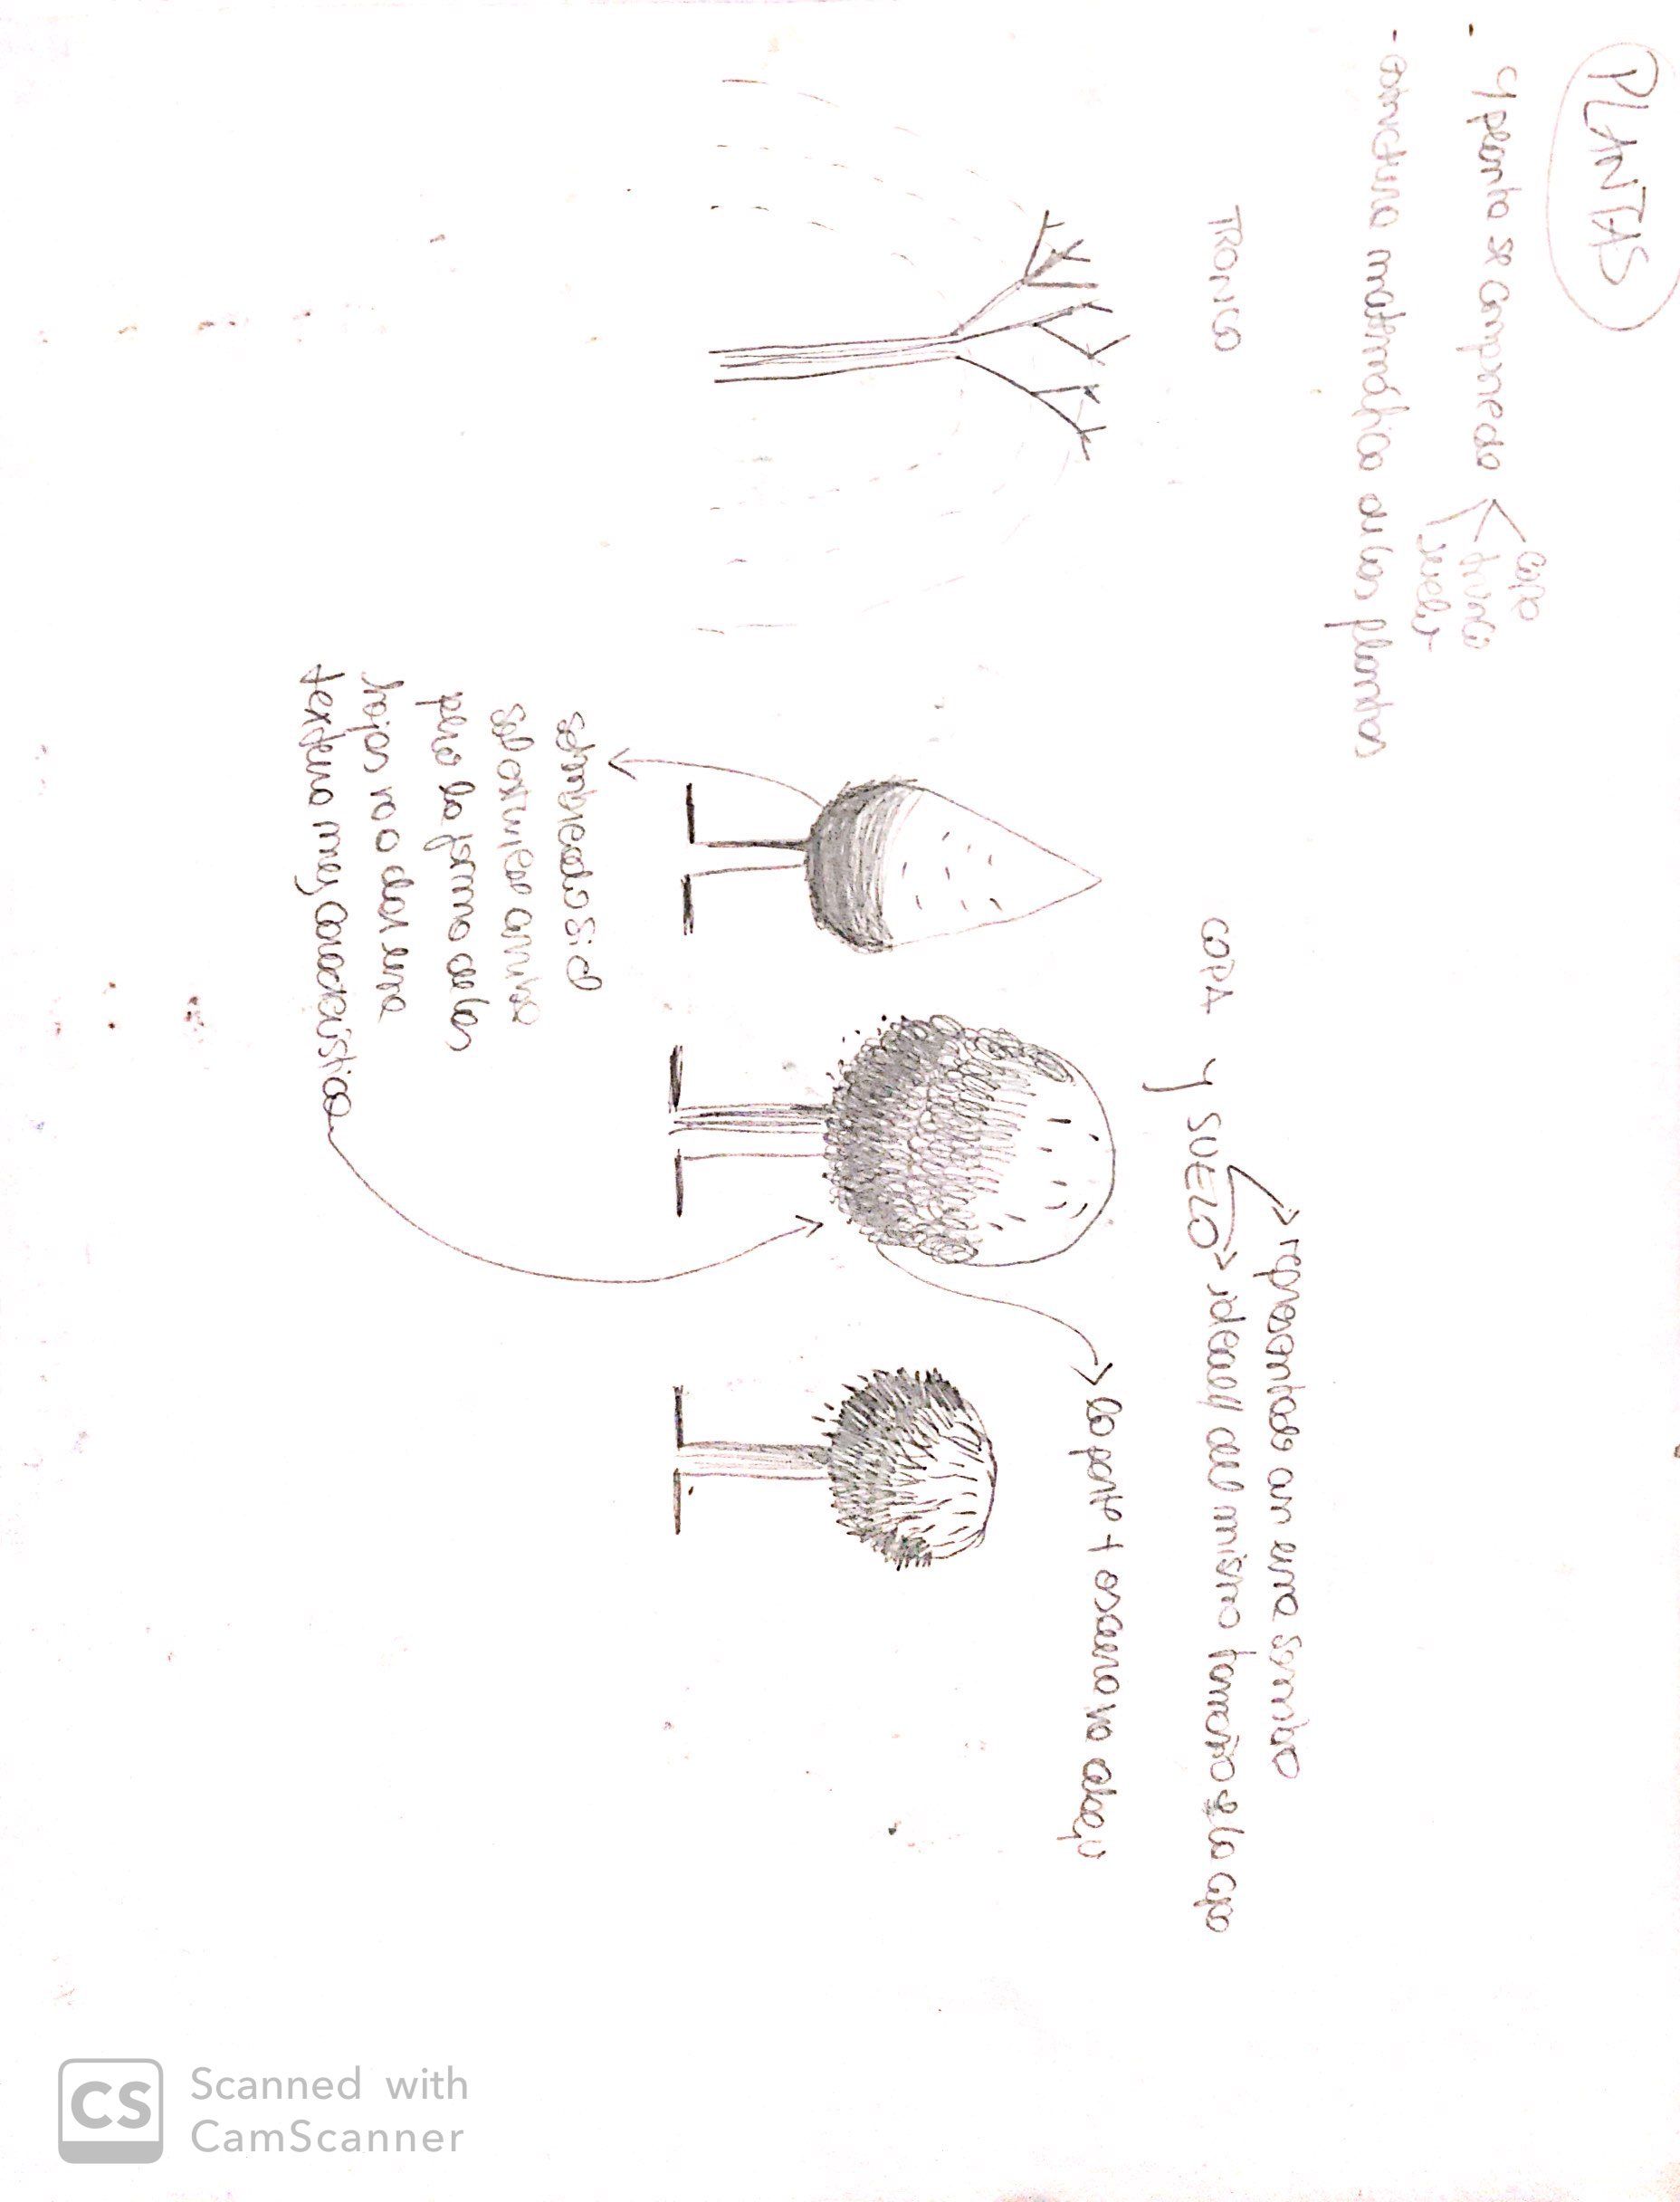 PLANTAS
- y planta se comprende < copa
tronco
suelo
- estructura matemática de las plantas
TRONCO
COPA Y SUELO
→ representado con una sombra
→ ideal del mismo tamaño q la copa
→ la parte + oscura va abajo
sombreado si el
sol estuviese arriba
pero la forma de las
hojas va a dar una
textura muy característica
CS Scanned with
CamScanner